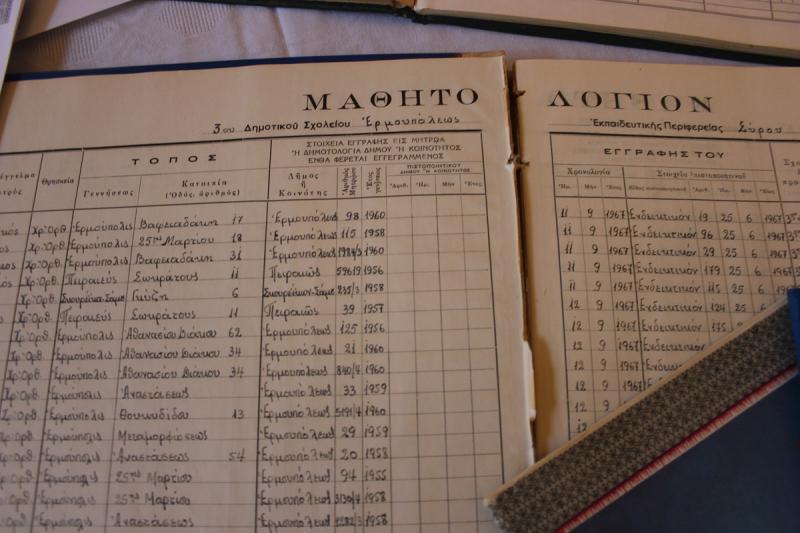 ΜΑΘΗΤΟ ΛΟΓΙΟΝ
3ου Δημοτικοῦ Σχολείου Ἑρμουπόλεως Ἐκπαιδευτικῆς Περιφερείας Σύρου
ΤΟΠΟΣ
ΣΤΟΙΧΕΙΑ ΕΓΓΡΑΦΗΣ ΕΙΣ ΜΗΤΡΩΑ
Ἢ ΔΗΜΟΤΟΛΟΓΙΑ ΔΗΜΟΥ Ἢ ΚΟΙΝΟΤΗΤΟΣ
ΕΝΘΑ ΦΕΡΕΤΑΙ ΕΓΓΕΓΡΑΜΜΕΝΟΣ
ΕΓΓΡΑΦΗΣ ΤΟΥ
Θρησκεία Γεννήσεως Κατοικία (Ὁδός, ἀριθμός) Δῆμος ἢ Κοινότης Ἀριθμὸς Μητρῴου Ἔτος
ΠΙΣΤΟΠΟΙΗΤΙΚΟΥ ΔΗΜΟΥ Ἢ ΚΟΙΝΟΤΗΤΟΣ
Ἀριθ. Ἡμ. Μὴν Ἔτος
Χρονολογία Στοιχεῖα πιστοποιητικοῦ
Ἡμ. Μὴν Ἔτος Εἶδος πιστοποιητικοῦ Ἀριθ. Ἡμ. Μὴν Ἔτος
Χρ. Ὀρθ. Ἑρμούπολις Βαφειαδάκη 17 Ἑρμουπόλεως 98 1960 11 9 1967 Ἐνδεικτικόν 19 25 6 1967
Χρ. Ὀρθ. Ἑρμούπολις 25ης Μαρτίου 18 Ἑρμουπόλεως 115 1958 11 9 1967 Ἐνδεικτικόν 96 25 6 1967
Χρ. Ὀρθ. Ἑρμούπολις Βαφειαδάκη 31 Ἑρμουπόλεως 1960 11 9 1967 Ἐνδεικτικόν 29 25 6 1967
Χρ. Ὀρθ. Πειραιεύς Σωκράτους 11 Πειραιῶς 59619 1956 11 9 1967 Ἐνδεικτικόν 179 25 6 1967
Χρ. Ὀρθ. Γκύζη 6 235/3 1958 11 9 1967 Ἐνδεικτικόν 115 25 6 1967
Χρ. Ὀρθ. Πειραιεύς Σωκράτους 11 Πειραιῶς 39 1957 12 9 1967 Ἐνδεικτικόν 124 25 6
Χρ. Ὀρθ. Ἑρμούπολις Ἀθανασίου Διάκου 62 Ἑρμουπόλεως 125 1956 12 9 1967 Ἐνδεικτικόν 175
Χρ. Ὀρθ. Ἑρμούπολις Ἀθανασίου Διάκου 34 Ἑρμουπόλεως 21 1960 12 9 1967
Χρ. Ὀρθ. Ἑρμούπολις Ἀθανασίου Διάκου 34 Ἑρμουπόλεως 840/4 1960 12 9 1967
Χρ. Ὀρθ. Ἑρμούπολις Ἀναστάσεως Ἑρμουπόλεως 33 1959 12 9 1967
Χρ. Ὀρθ. Ἑρμούπολις Θουκυδίδου 13 Ἑρμουπόλεως 5191/4 1960 12 9
Χρ. Ὀρθ. Ἑρμούπολις Μεταμορφώσεως Ἑρμουπόλεως 29 1959 12
Χρ. Ὀρθ. Ἑρμούπολις Ἀναστάσεως 54 Ἑρμουπόλεως 20 1958
Χρ. Ὀρθ. Ἑρμούπολις 25ης Μαρτίου Ἑρμουπόλεως 94 1955
Χρ. Ὀρθ. Ἑρμούπολις 25ης Μαρτίου Ἑρμουπόλεως 3130/4 1958
Χρ. Ὀρθ. Ἑρμούπολις Ἀναστάσεως Ἑρμουπόλεως 1282/3 1958